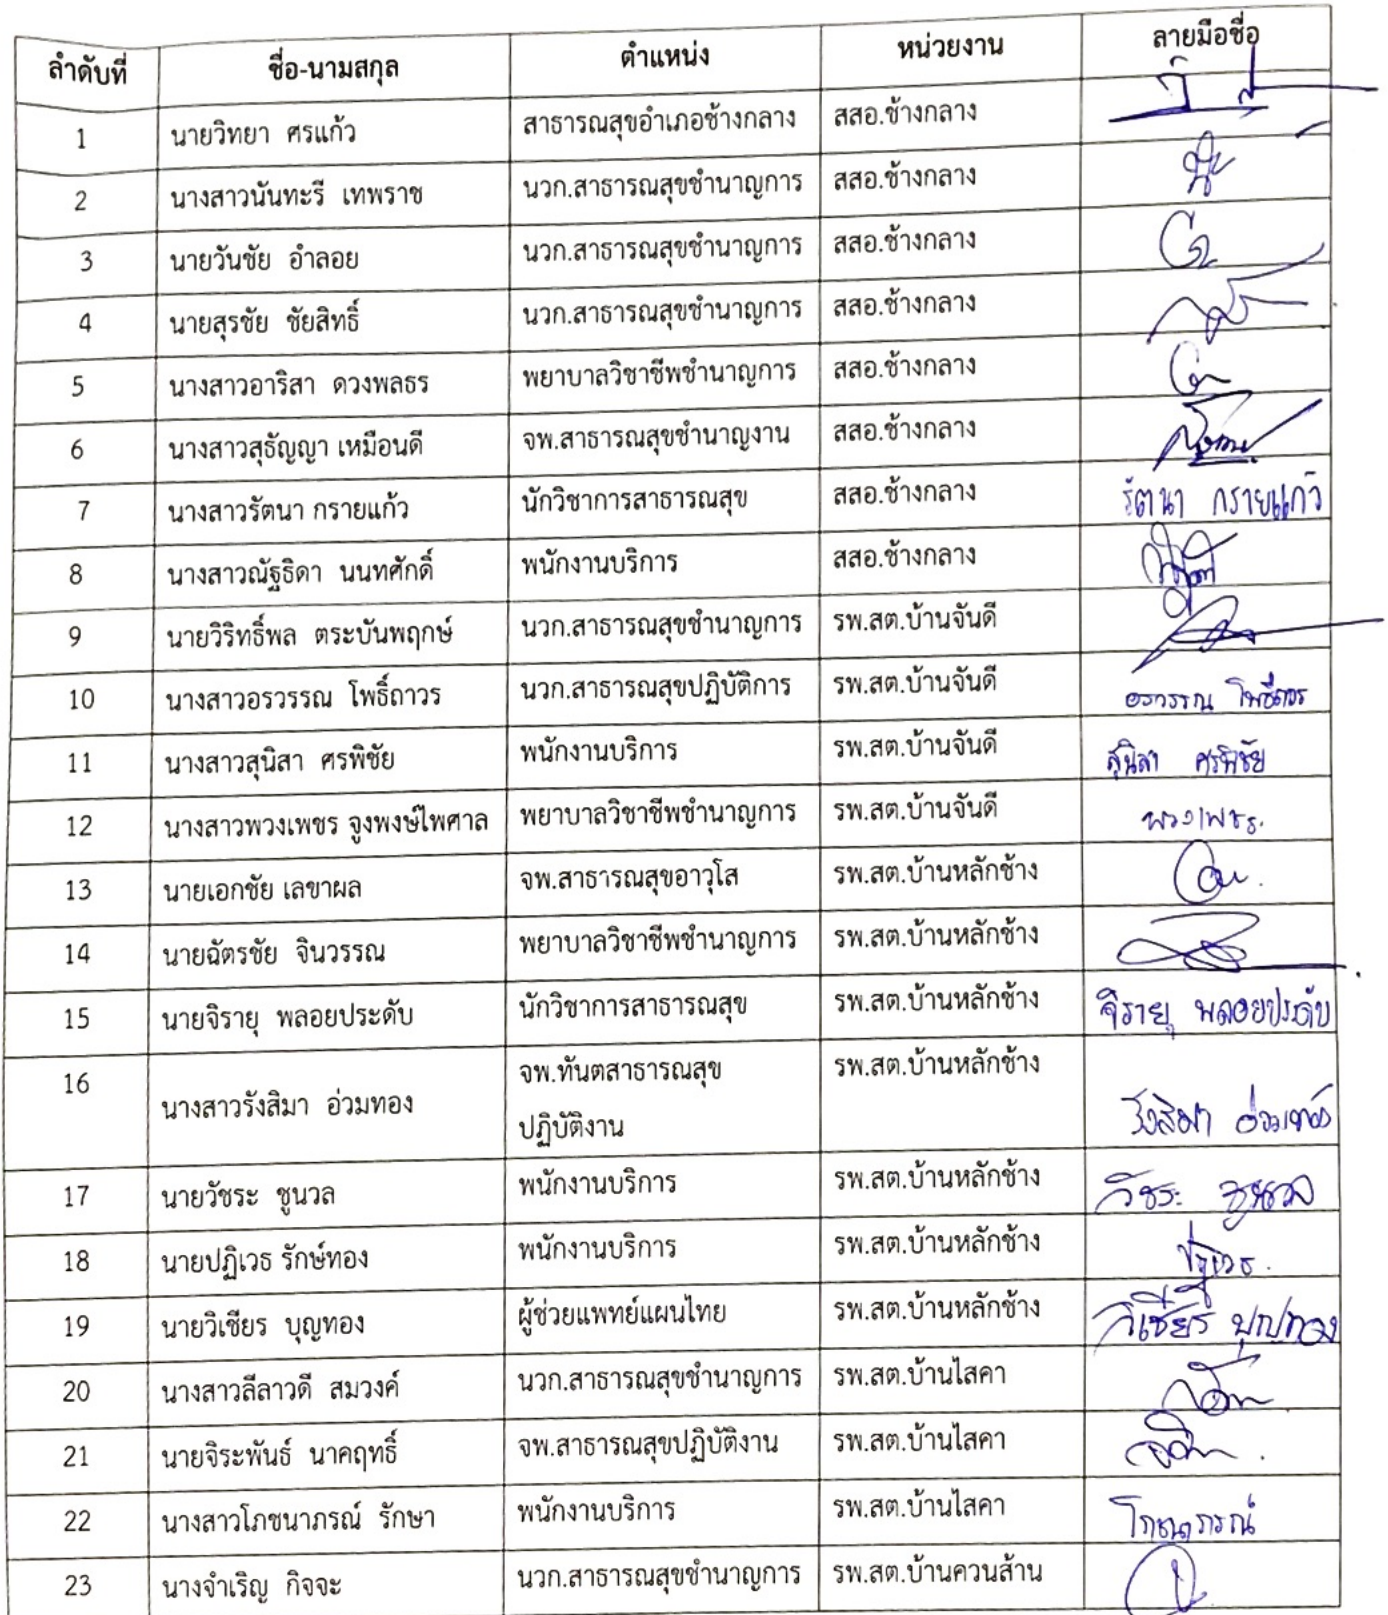 ลำดับที่ ชื่อ-นามสกุล ตำแหน่ง หน่วยงาน ลายมือชื่อ
1 นายวิทยา ศรแก้ว สาธารณสุขอำเภอช้างกลาง สสอ.ช้างกลาง
2 นางสาวนันทะรี เทพราช นวก.สาธารณสุขชำนาญการ สสอ.ช้างกลาง
3 นายวันชัย อำลอย นวก.สาธารณสุขชำนาญการ สสอ.ช้างกลาง
4 นายสุรชัย ชัยสิทธิ์ นวก.สาธารณสุขชำนาญการ สสอ.ช้างกลาง
5 นางสาวอาริสา ดวงพลธร พยาบาลวิชาชีพชำนาญการ สสอ.ช้างกลาง
6 นางสาวสุธัญญา เหมือนดี จพ.สาธารณสุขชำนาญงาน สสอ.ช้างกลาง
7 นางสาวรัตนา กรายแก้ว นักวิชาการสาธารณสุข สสอ.ช้างกลาง รัตนา กรายแก้ว
8 นางสาวณัฐธิดา นนทศักดิ์ พนักงานบริการ สสอ.ช้างกลาง
9 นายวิริทธิ์พล ตระบันพฤกษ์ นวก.สาธารณสุขชำนาญการ รพ.สต.บ้านจันดี
10 นางสาวอรวรรณ โพธิ์ถาวร นวก.สาธารณสุขปฏิบัติการ รพ.สต.บ้านจันดี อรวรรณ โพธิ์ถาวร
11 นางสาวสุนิสา ศรพิชัย พนักงานบริการ รพ.สต.บ้านจันดี สุนิสา ศรพิชัย
12 นางสาวพวงเพชร จูงพงษ์ไพศาล พยาบาลวิชาชีพชำนาญการ รพ.สต.บ้านจันดี พวงเพชร.
13 นายเอกชัย เลขาผล จพ.สาธารณสุขอาวุโส รพ.สต.บ้านหลักช้าง
14 นายฉัตรชัย จินวรรณ พยาบาลวิชาชีพชำนาญการ รพ.สต.บ้านหลักช้าง
15 นายจิรายุ พลอยประดับ นักวิชาการสาธารณสุข รพ.สต.บ้านหลักช้าง จิรายุ พลอยประดับ
16 นางสาวรังสิมา อ่วมทอง จพ.ทันตสาธารณสุข รพ.สต.บ้านหลักช้าง
ปฏิบัติงาน รังสิมา อ่วมทอง
17 นายวัชระ ชูนวล พนักงานบริการ รพ.สต.บ้านหลักช้าง วัชระ ชูนวล
18 นายปฏิเวธ รักษ์ทอง พนักงานบริการ รพ.สต.บ้านหลักช้าง ปฏิเวธ.
19 นายวิเชียร บุญทอง ผู้ช่วยแพทย์แผนไทย รพ.สต.บ้านหลักช้าง วิเชียร บุญทอง
20 นางสาวลีลาวดี สมวงค์ นวก.สาธารณสุขชำนาญการ รพ.สต.บ้านไสคา
21 นายจิระพันธ์ นาคฤทธิ์ จพ.สาธารณสุขปฏิบัติงาน รพ.สต.บ้านไสคา
22 นางสาวโภชนาภรณ์ รักษา พนักงานบริการ รพ.สต.บ้านไสคา โภชนาภรณ์
23 นางจำเริญ กิจจะ นวก.สาธารณสุขชำนาญการ รพ.สต.บ้านควนส้าน